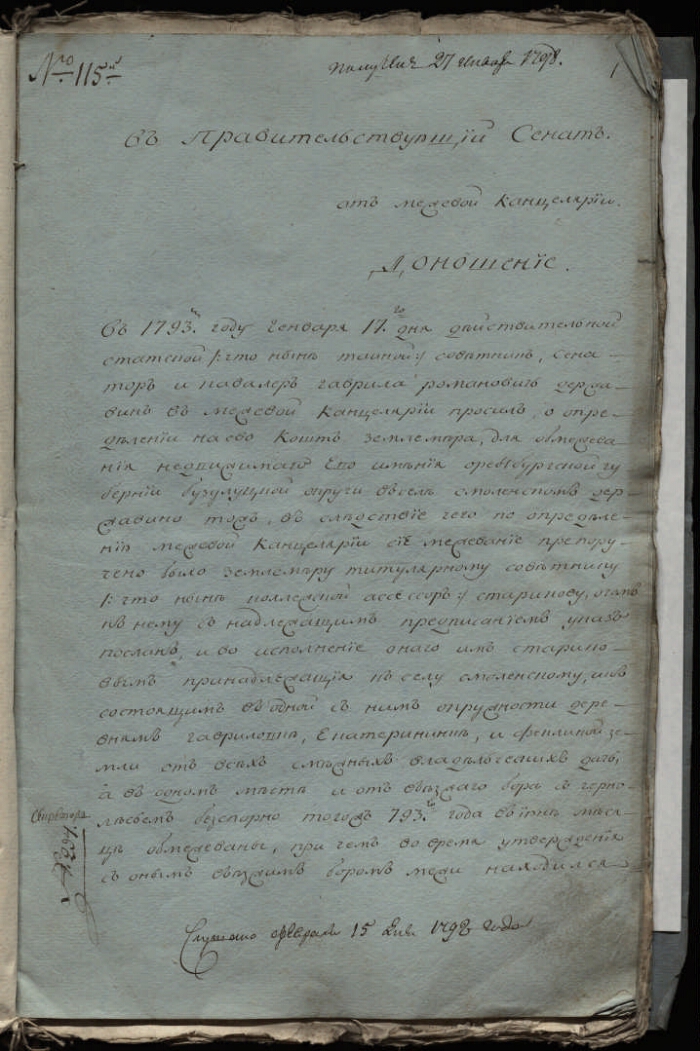 № 115й
получич 27 генваря 1798.
1
Въ Правительствующій Сенатъ.
отъ межевой Канцеляріи.
Доношеніе.
Въ 1793м году Генваря 17го дня дѣйствительной
статской /: что нынѣ тайной :/ совѣтникъ, Сена-
торъ и кавалеръ Гаврила Романовичь Держа-
винъ въ межевой Канцеляріи просилъ, о опре-
дѣленіи на ево Коштъ землемѣра, для обмежева-
нія недвижимаго Его имѣнія оренбургской гу
берніи бузулуцкой округи въ селѣ смоленскомъ дер-
жавино тожъ, въ слѣдствіе чего по опредѣле-
нію межевой Канцеляріи сіе межеваніе препору-
чено было землемѣру титулярному совѣтнику
/: что нынѣ коллежской ассессоръ :/ старикову, о чемъ
къ нему съ надлежащимъ предписаніемъ указъ
посланъ, и во исполненіе онаго имъ старико-
вымъ принадлежащія къ селу смоленскому, и въ
состоящимъ въ одной съ нимъ окружности дере-
внямъ гавриловкѣ, Екатерининкѣ, и феклиной зе-
мли отъ всѣхъ смѣжныхъ владѣльческихъ дачь,
а въ одномъ мѣстѣ и отъ въѣзжаго бора съ черно-
лѣсьемъ безспорно тогожъ 793го года въ іюнѣ мѣся-
цѣ обмежеваны, при чемъ во время утвержденія
съ онымъ въѣзжимъ боромъ межи находился
Слушано февраля 15 дня 1798 года